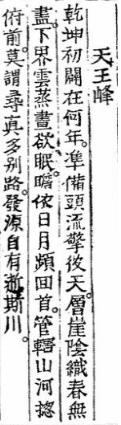 天王峰
乾坤初闢在何年。準備頭流擎彼天。層崖陰織春無
盡。下界雲蒸晝欲眠。瞻依日月頻回首。管轄山河揔
俯前。莫謂尋真多別路。發源自有逝斯川。